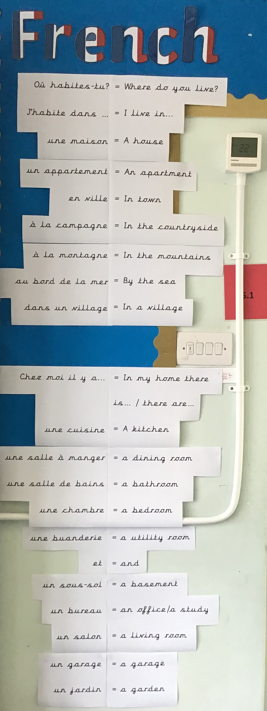 French
Où habites-tu? = Where do you live?
J'habite dans ... = I live in...
une maison = A house
un appartement = An apartment
en ville = In town
à la campagne = In the countryside
à la montagne = In the mountains
au bord de la mer = By the sea
dans un village = In a village
Chez moi il y a... = In my home there
is... / there are...
une cuisine = A kitchen
une salle à manger = a dining room
une salle de bains = a bathroom
une chambre = a bedroom
une buanderie = a utility room
et = and
un sous-sol = a basement
un bureau = an office/a study
un salon = a living room
un garage = a garage
un jardin = a garden